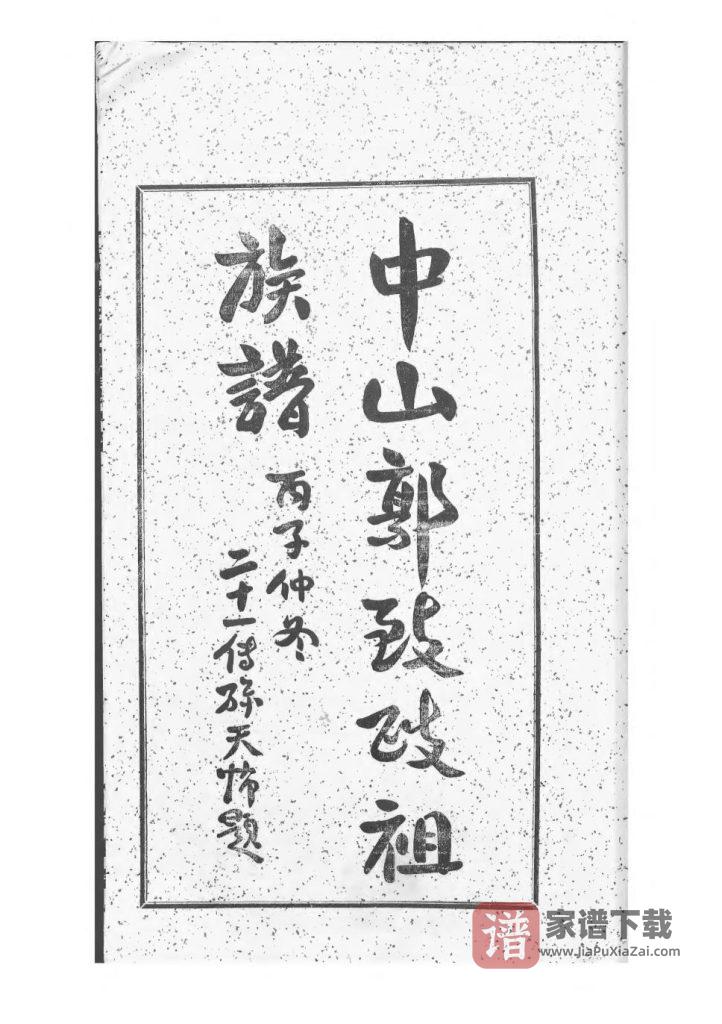 中山郭致政祖
族譜
丙子仲冬
二十一傳孫天題
谱 家谱下载
www.JiaPuXiaZai.com